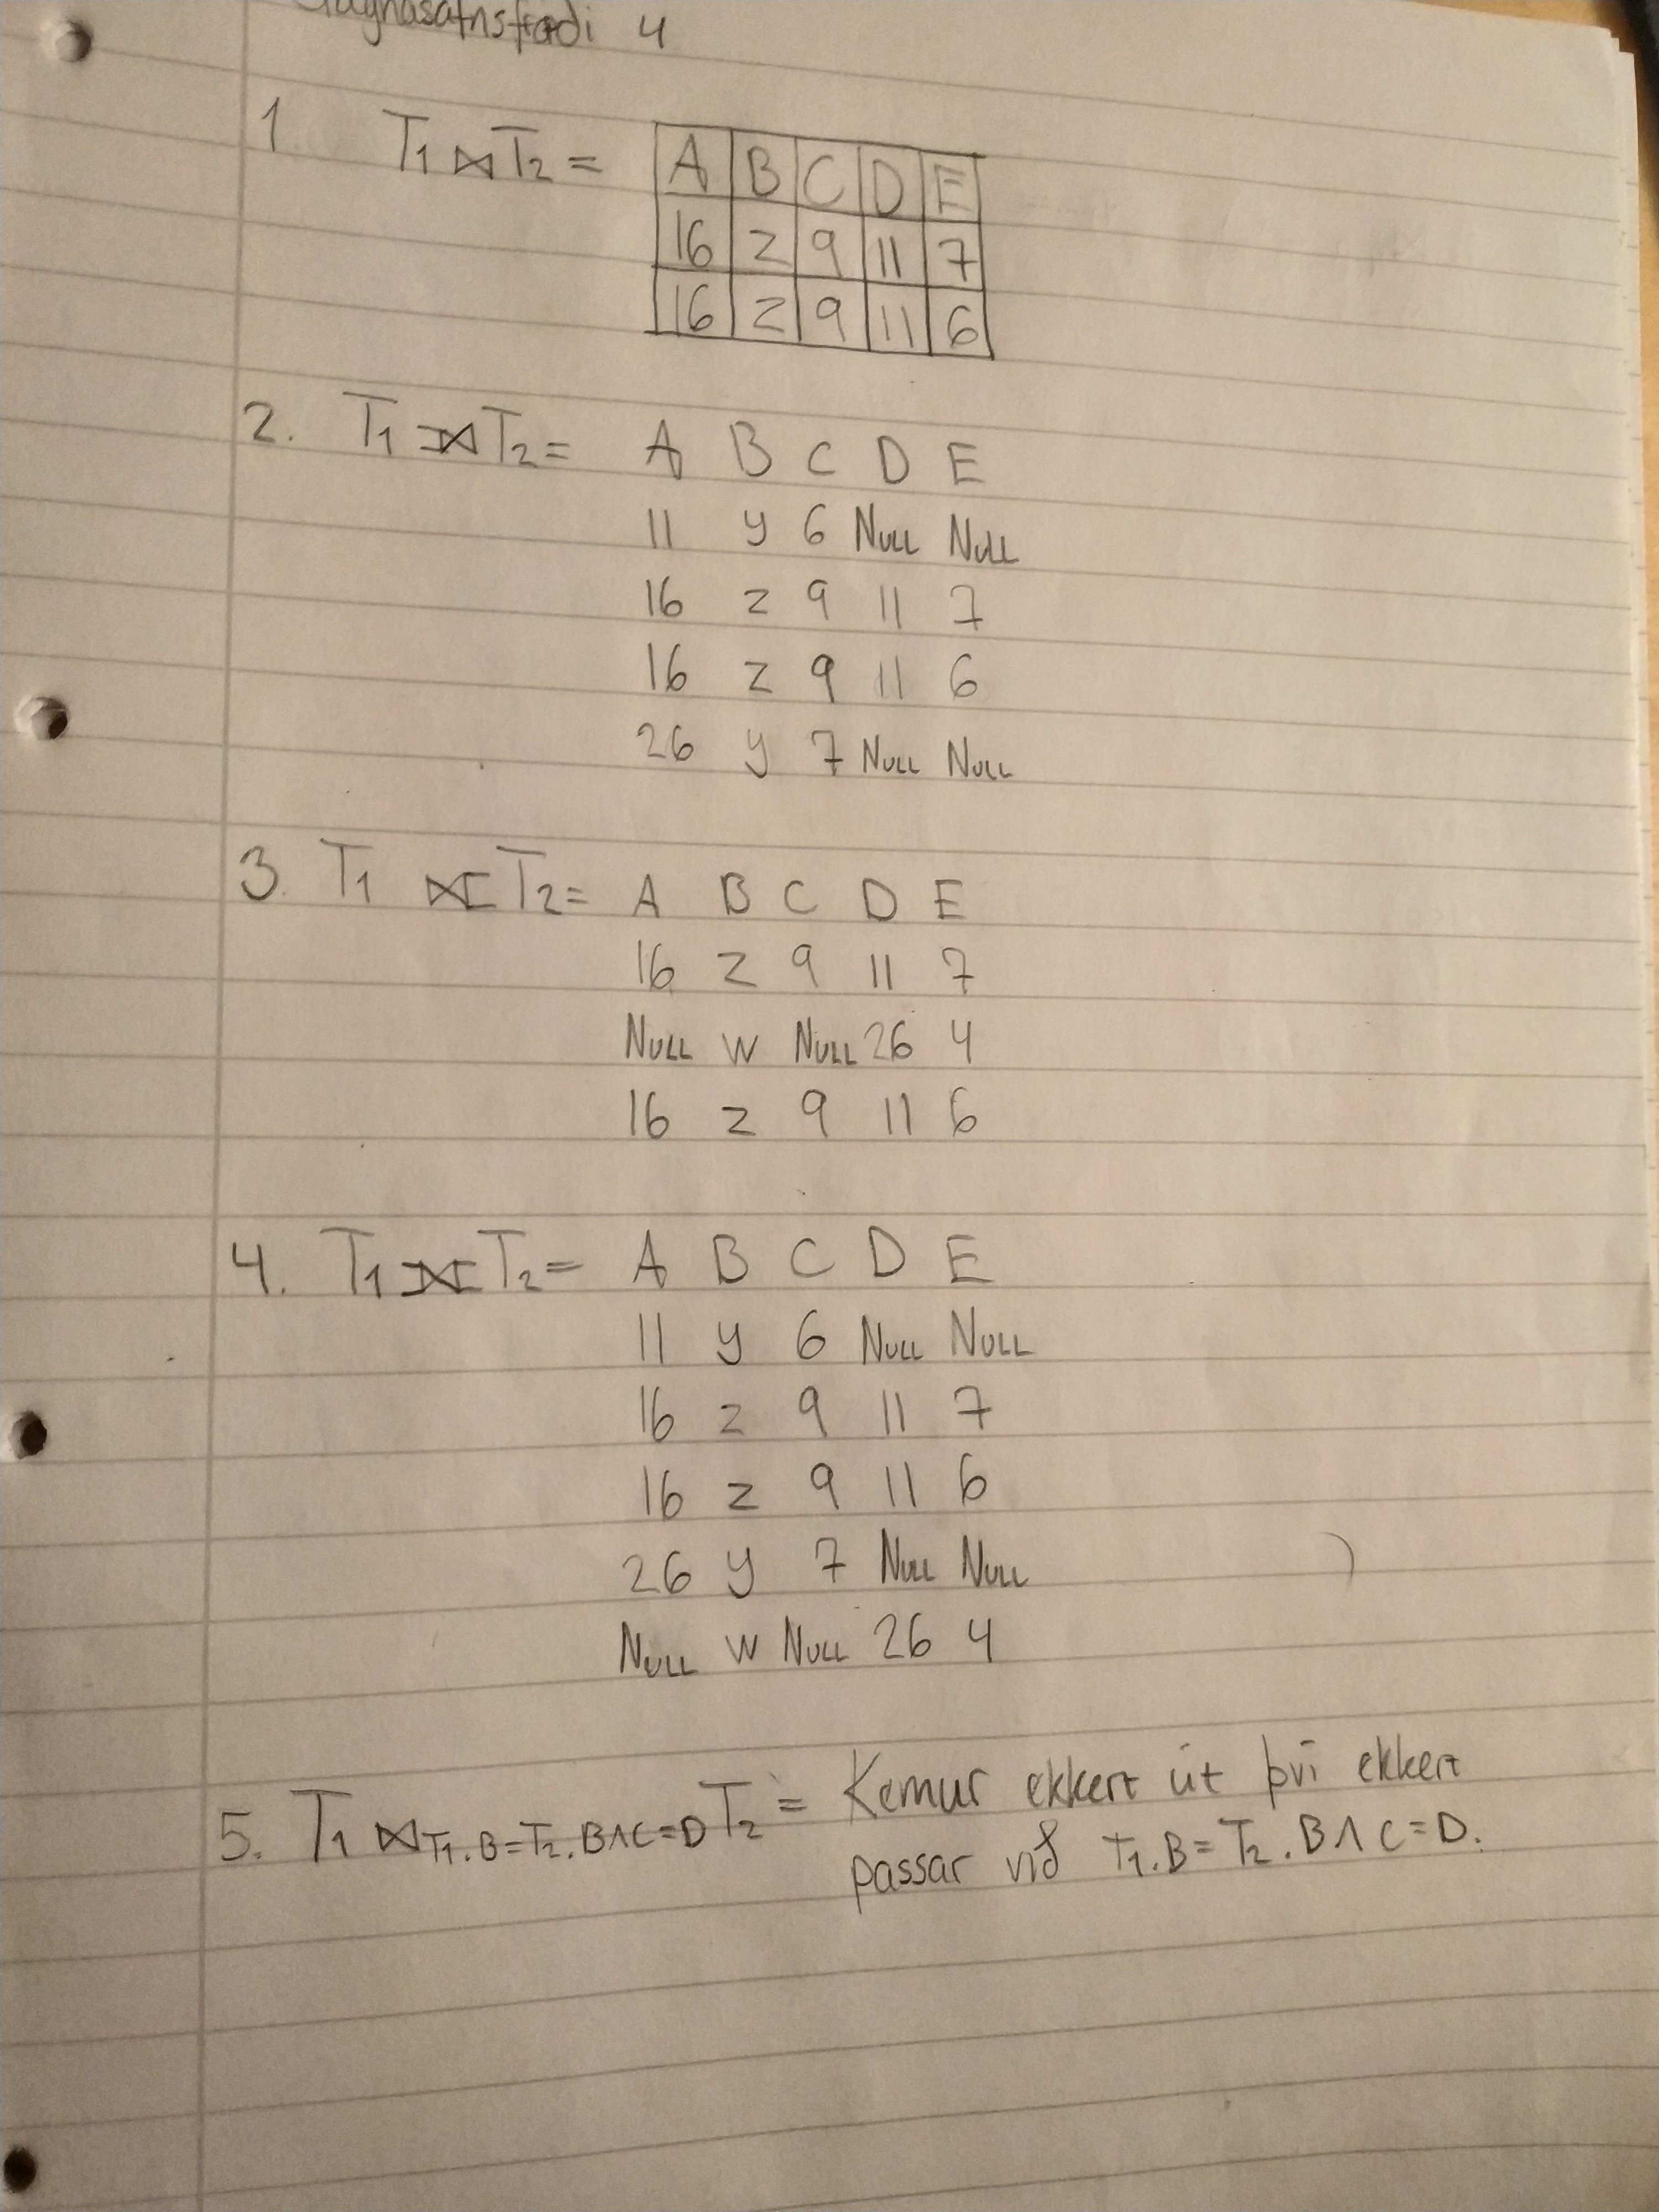 Gagnasafnsfræði 4
1 T1 ⋈ T2 =
A B C D E
16 z 9 11 7
16 z 9 11 6
2. T1 ⟕ T2 = A B C D E
11 y 6 NULL NULL
16 z 9 11 7
16 z 9 11 6
26 y 7 NULL NULL
3. T1 ⟖ T2 = A B C D E
16 z 9 11 7
NULL w NULL 26 4
16 z 9 11 6
4. T1 ⟗ T2 = A B C D E
11 y 6 NULL NULL
16 z 9 11 7
16 z 9 11 6
26 y 7 NULL NULL
NULL w NULL 26 4
5. T1 ⋈ T1.B=T2.B∧C=D T2 = Kemur ekkert út því ekkert
passar við T1.B=T2.B∧C=D.